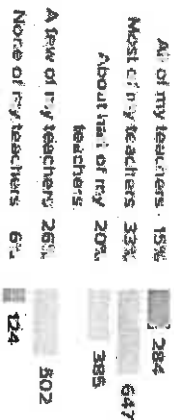 All of my teachers 15% 284
Most of my teachers 33% 647
About half of my 20% 385
teachers
A few of my teachers 26% 502
None of my teachers 6% 124